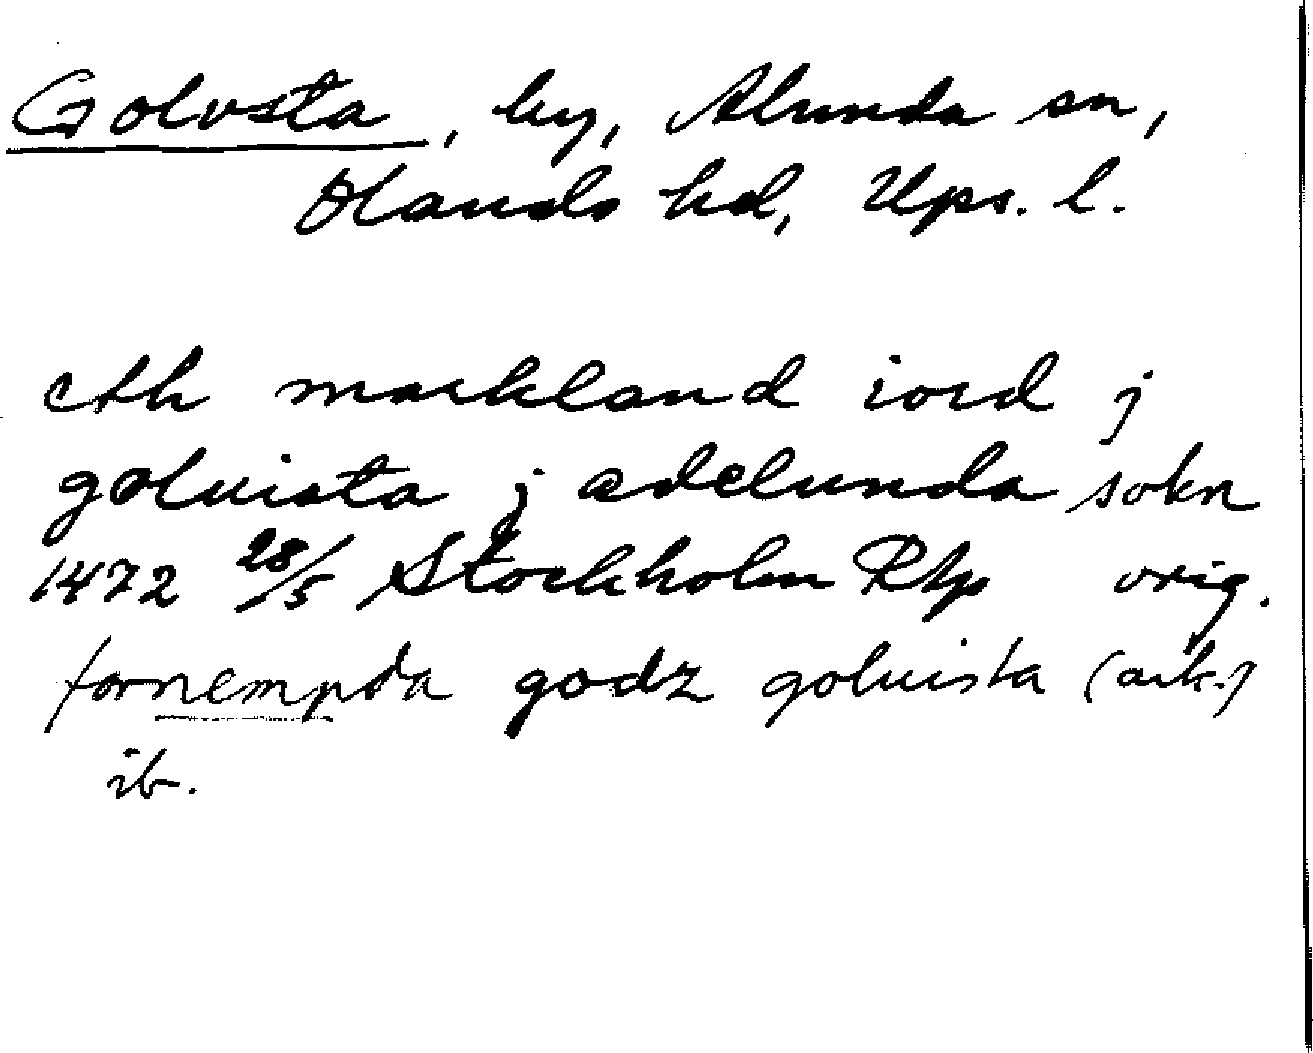 Golvsta, by, Alunda sn,
Olands hd, Ups. l.
eth markland iord j
goluista j adelunda sokn
1472 28/5 Stockholm RAp orig.
fornempda godz goluista (ack.)
ib.